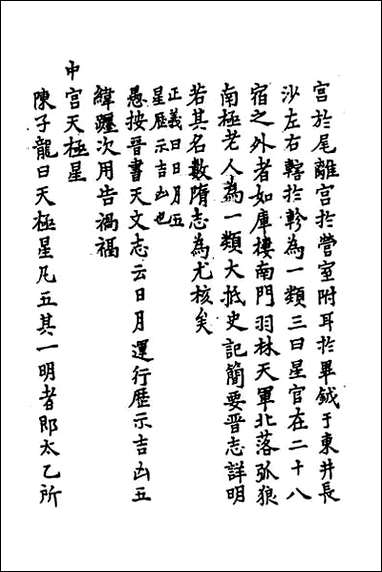 宮於尾離宮於營室附耳於畢鉞于東井長
沙左右轄於軫為一類三曰星官在二十八
宿之外者如庫樓南門羽林天軍北落弧狼
南極老人為一類大抵史記簡要晉志詳明
若其名數隋志為尤核矣
正義曰日月五
星歷示吉凶也
愚按晉書天文志云日月運行歷示吉凶五
緯躔次用告禍福
中宮天極星
陳子龍曰天極星凡五其一明者即太乙所